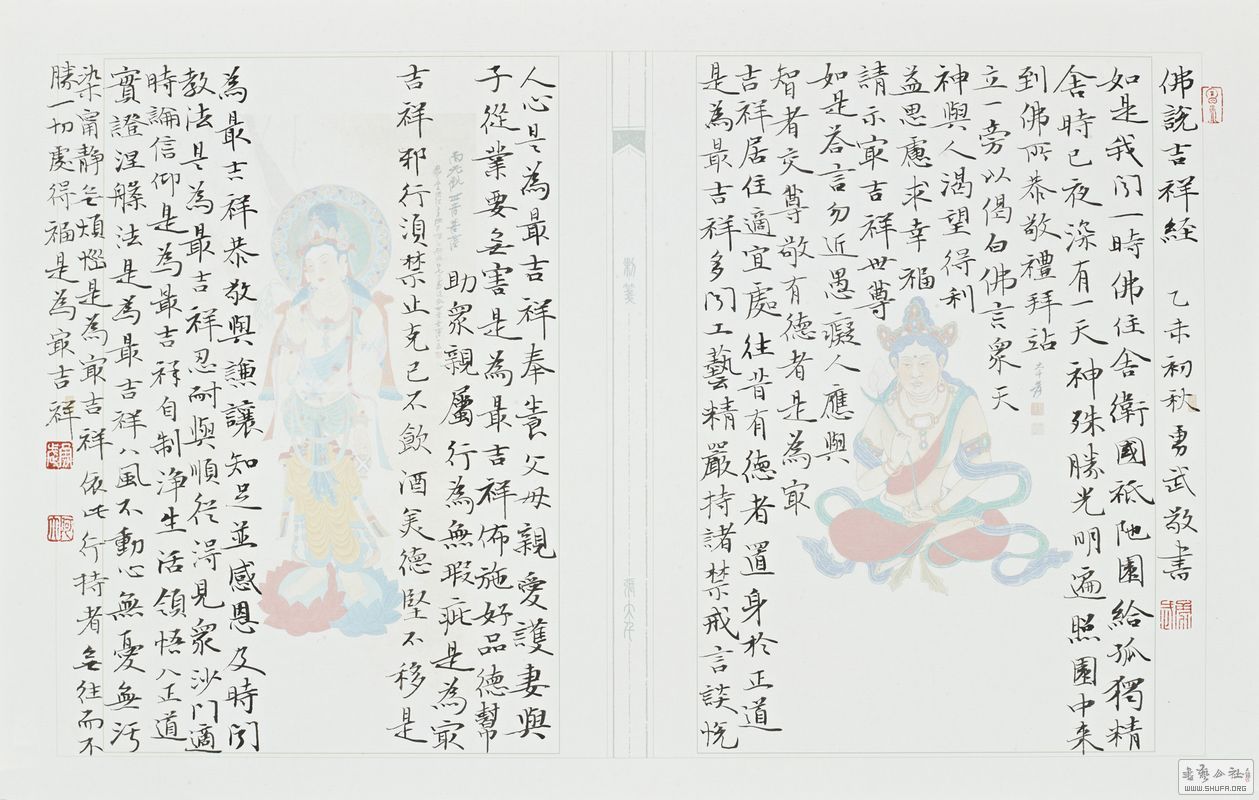 佛說吉祥経 乙未初秋 勇武敬書
如是我闻一時佛住舍衛國祗陁園給孤獨精
舍時已夜深有一天神殊勝光明遍照園中来
到佛所恭敬禮拜站
立一旁以偈白佛言衆天
神與人渴望得利
益思慮求幸福
請示冣吉祥世尊
如是答言勿近愚癡人應與
智者交尊敬有德者是為冣
吉祥居住適宜處往昔有德者置身於正道
是為最吉祥多闻工藝精嚴持諸禁戒言談悦
人心是為最吉祥奉養父母親愛護妻與
子從業要無害是為最吉祥佈施好品德幫
助衆親屬行為無瑕疵是為冣
吉祥邪行須禁止克己不飲酒美德堅不移是
為最吉祥恭敬與謙讓知足並感恩及時闻
教法是為最吉祥忍耐與順從得見衆沙门適
時論信仰是為最吉祥自制淨生活領悟八正道
實證涅槃法是為最吉祥八風不動心無憂無污
染甯靜無煩惱是為冣吉祥依此行持者無往而不
勝一切處得福是為冣吉祥
書藝公社
WWW.SHUFA.ORG